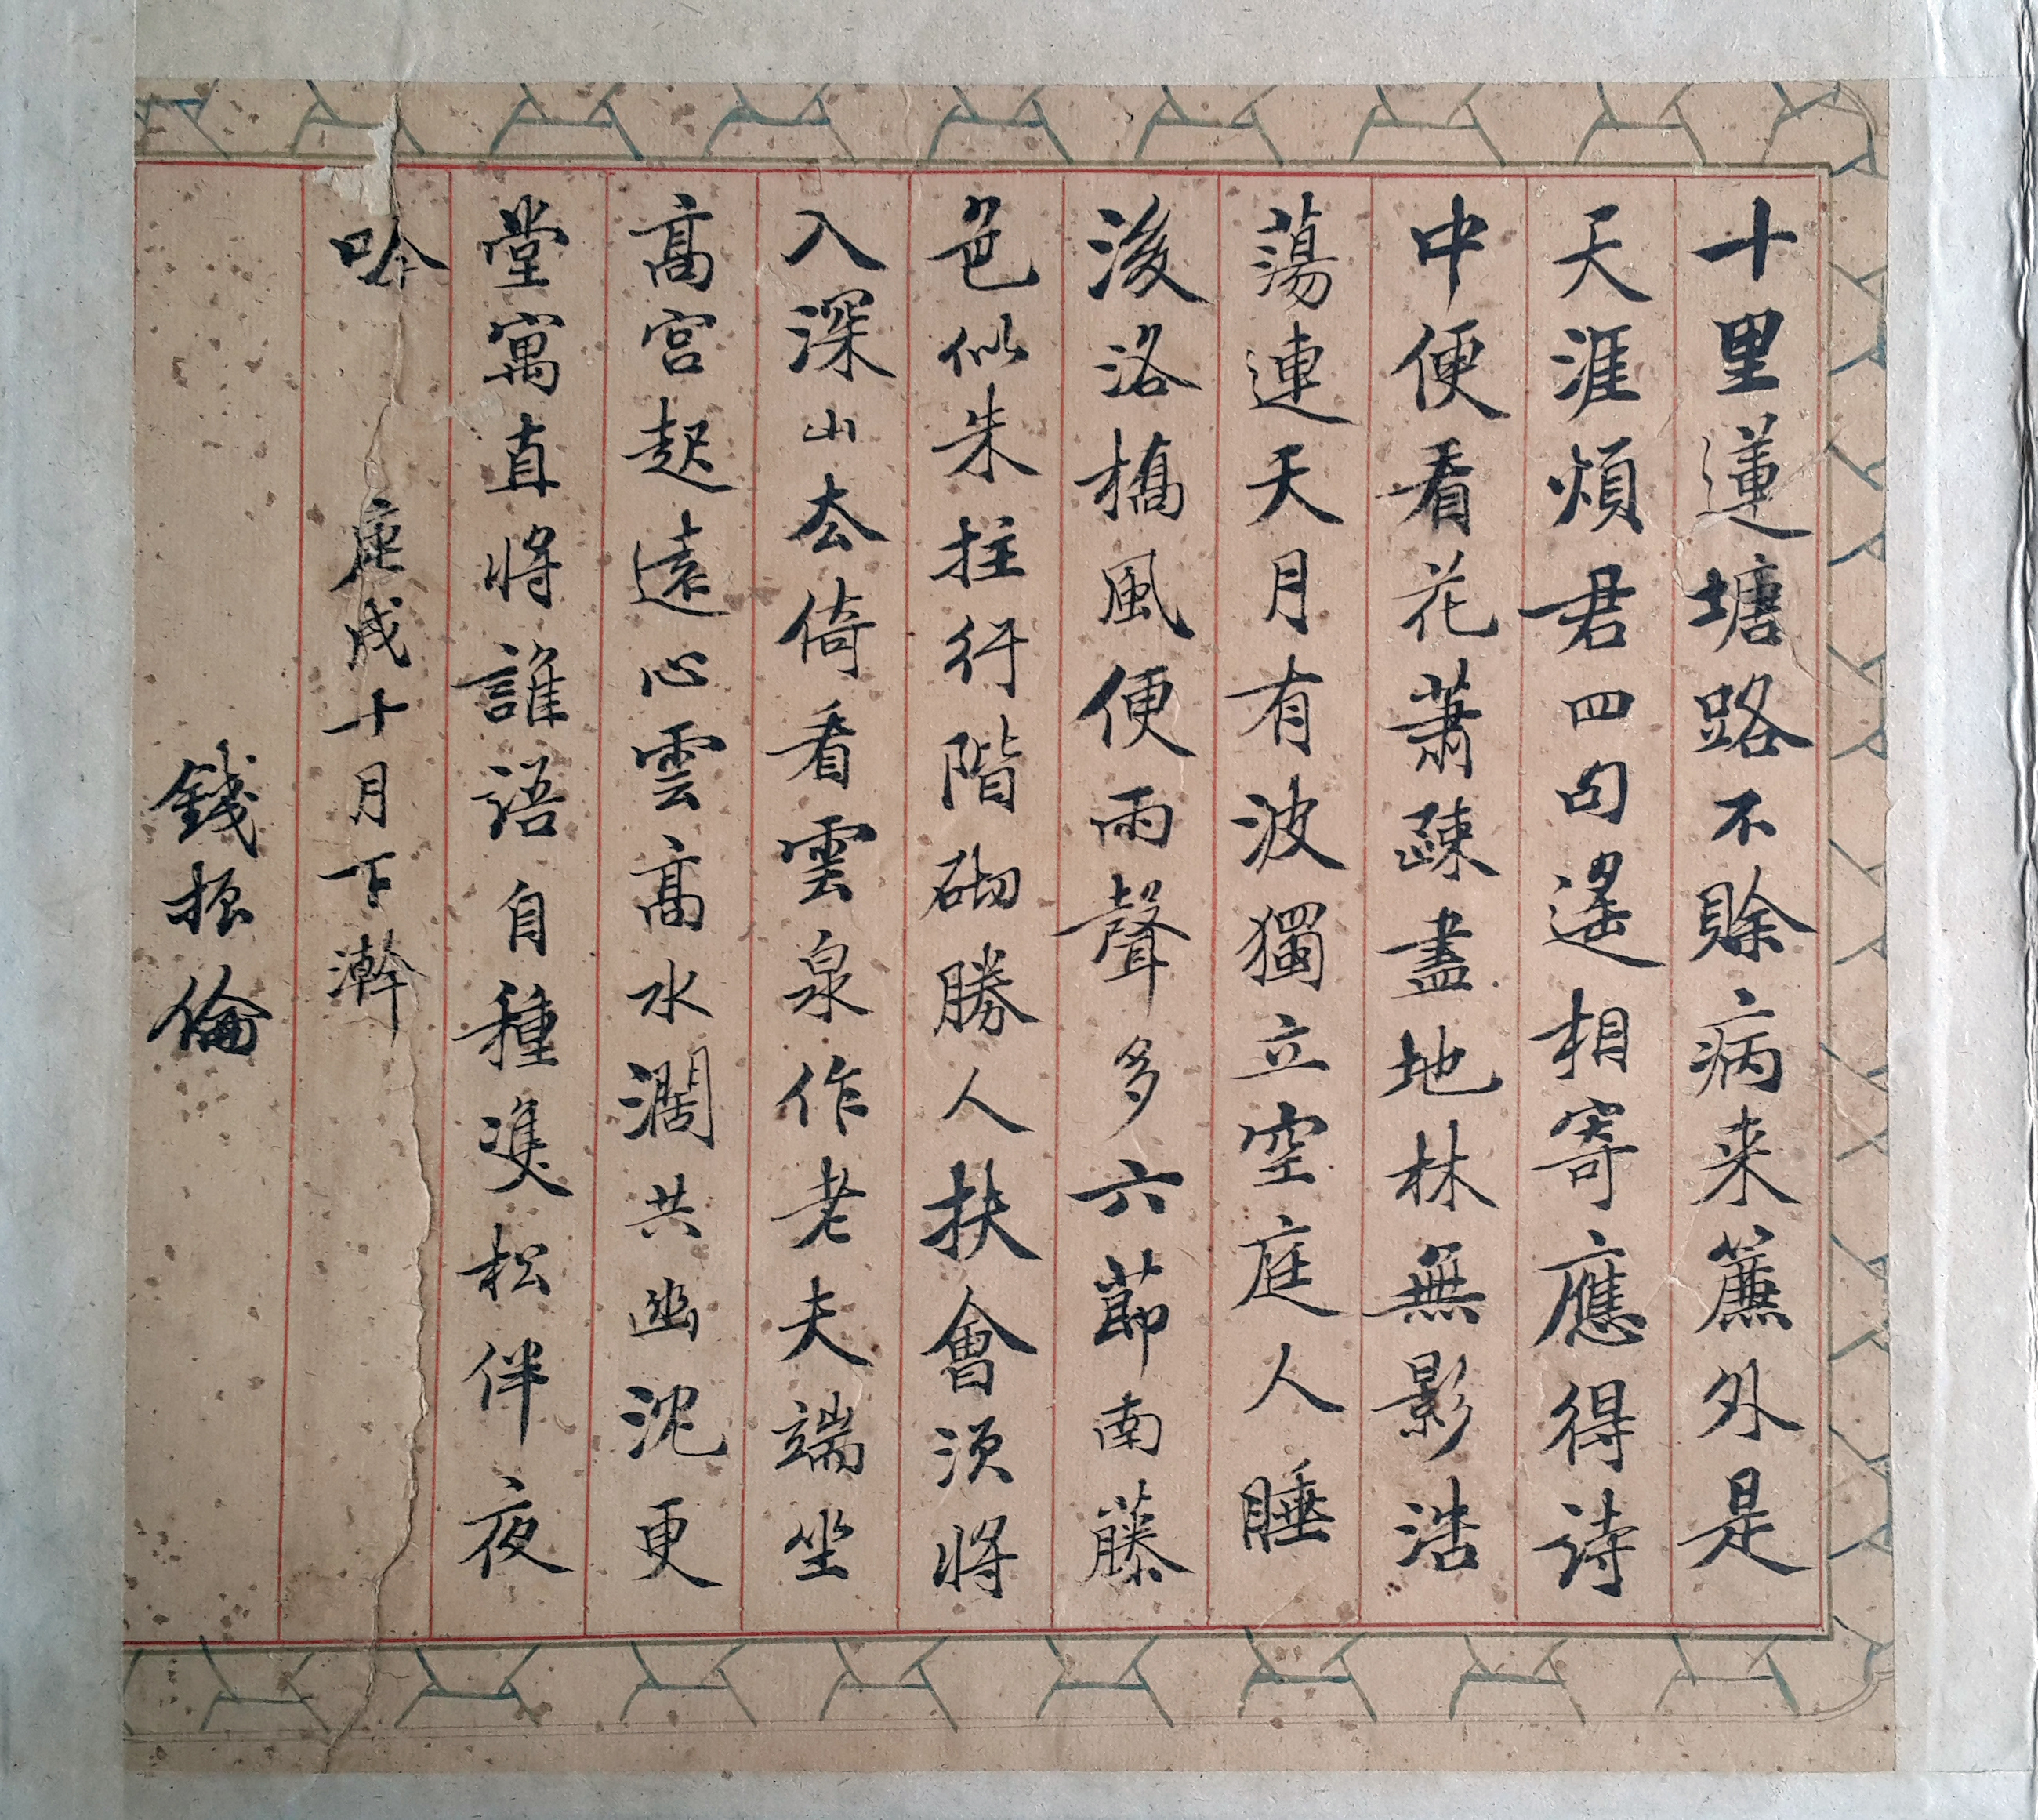 十里蓮塘路不賒病来簾外是
天涯煩君四句遙相寄應得詩
中便看花蕭疎盡地林無影浩
蕩連天月有波獨立空庭人睡
後洛橋風便雨聲多六節南藤
色似朱拄行階砌勝人扶會須將
入深山去倚看雲泉作老夫端坐
高宮起遠心雲高水濶共幽沈更
堂寓直將誰語自種雙松伴夜
吟 庚戌十月下澣
錢振倫